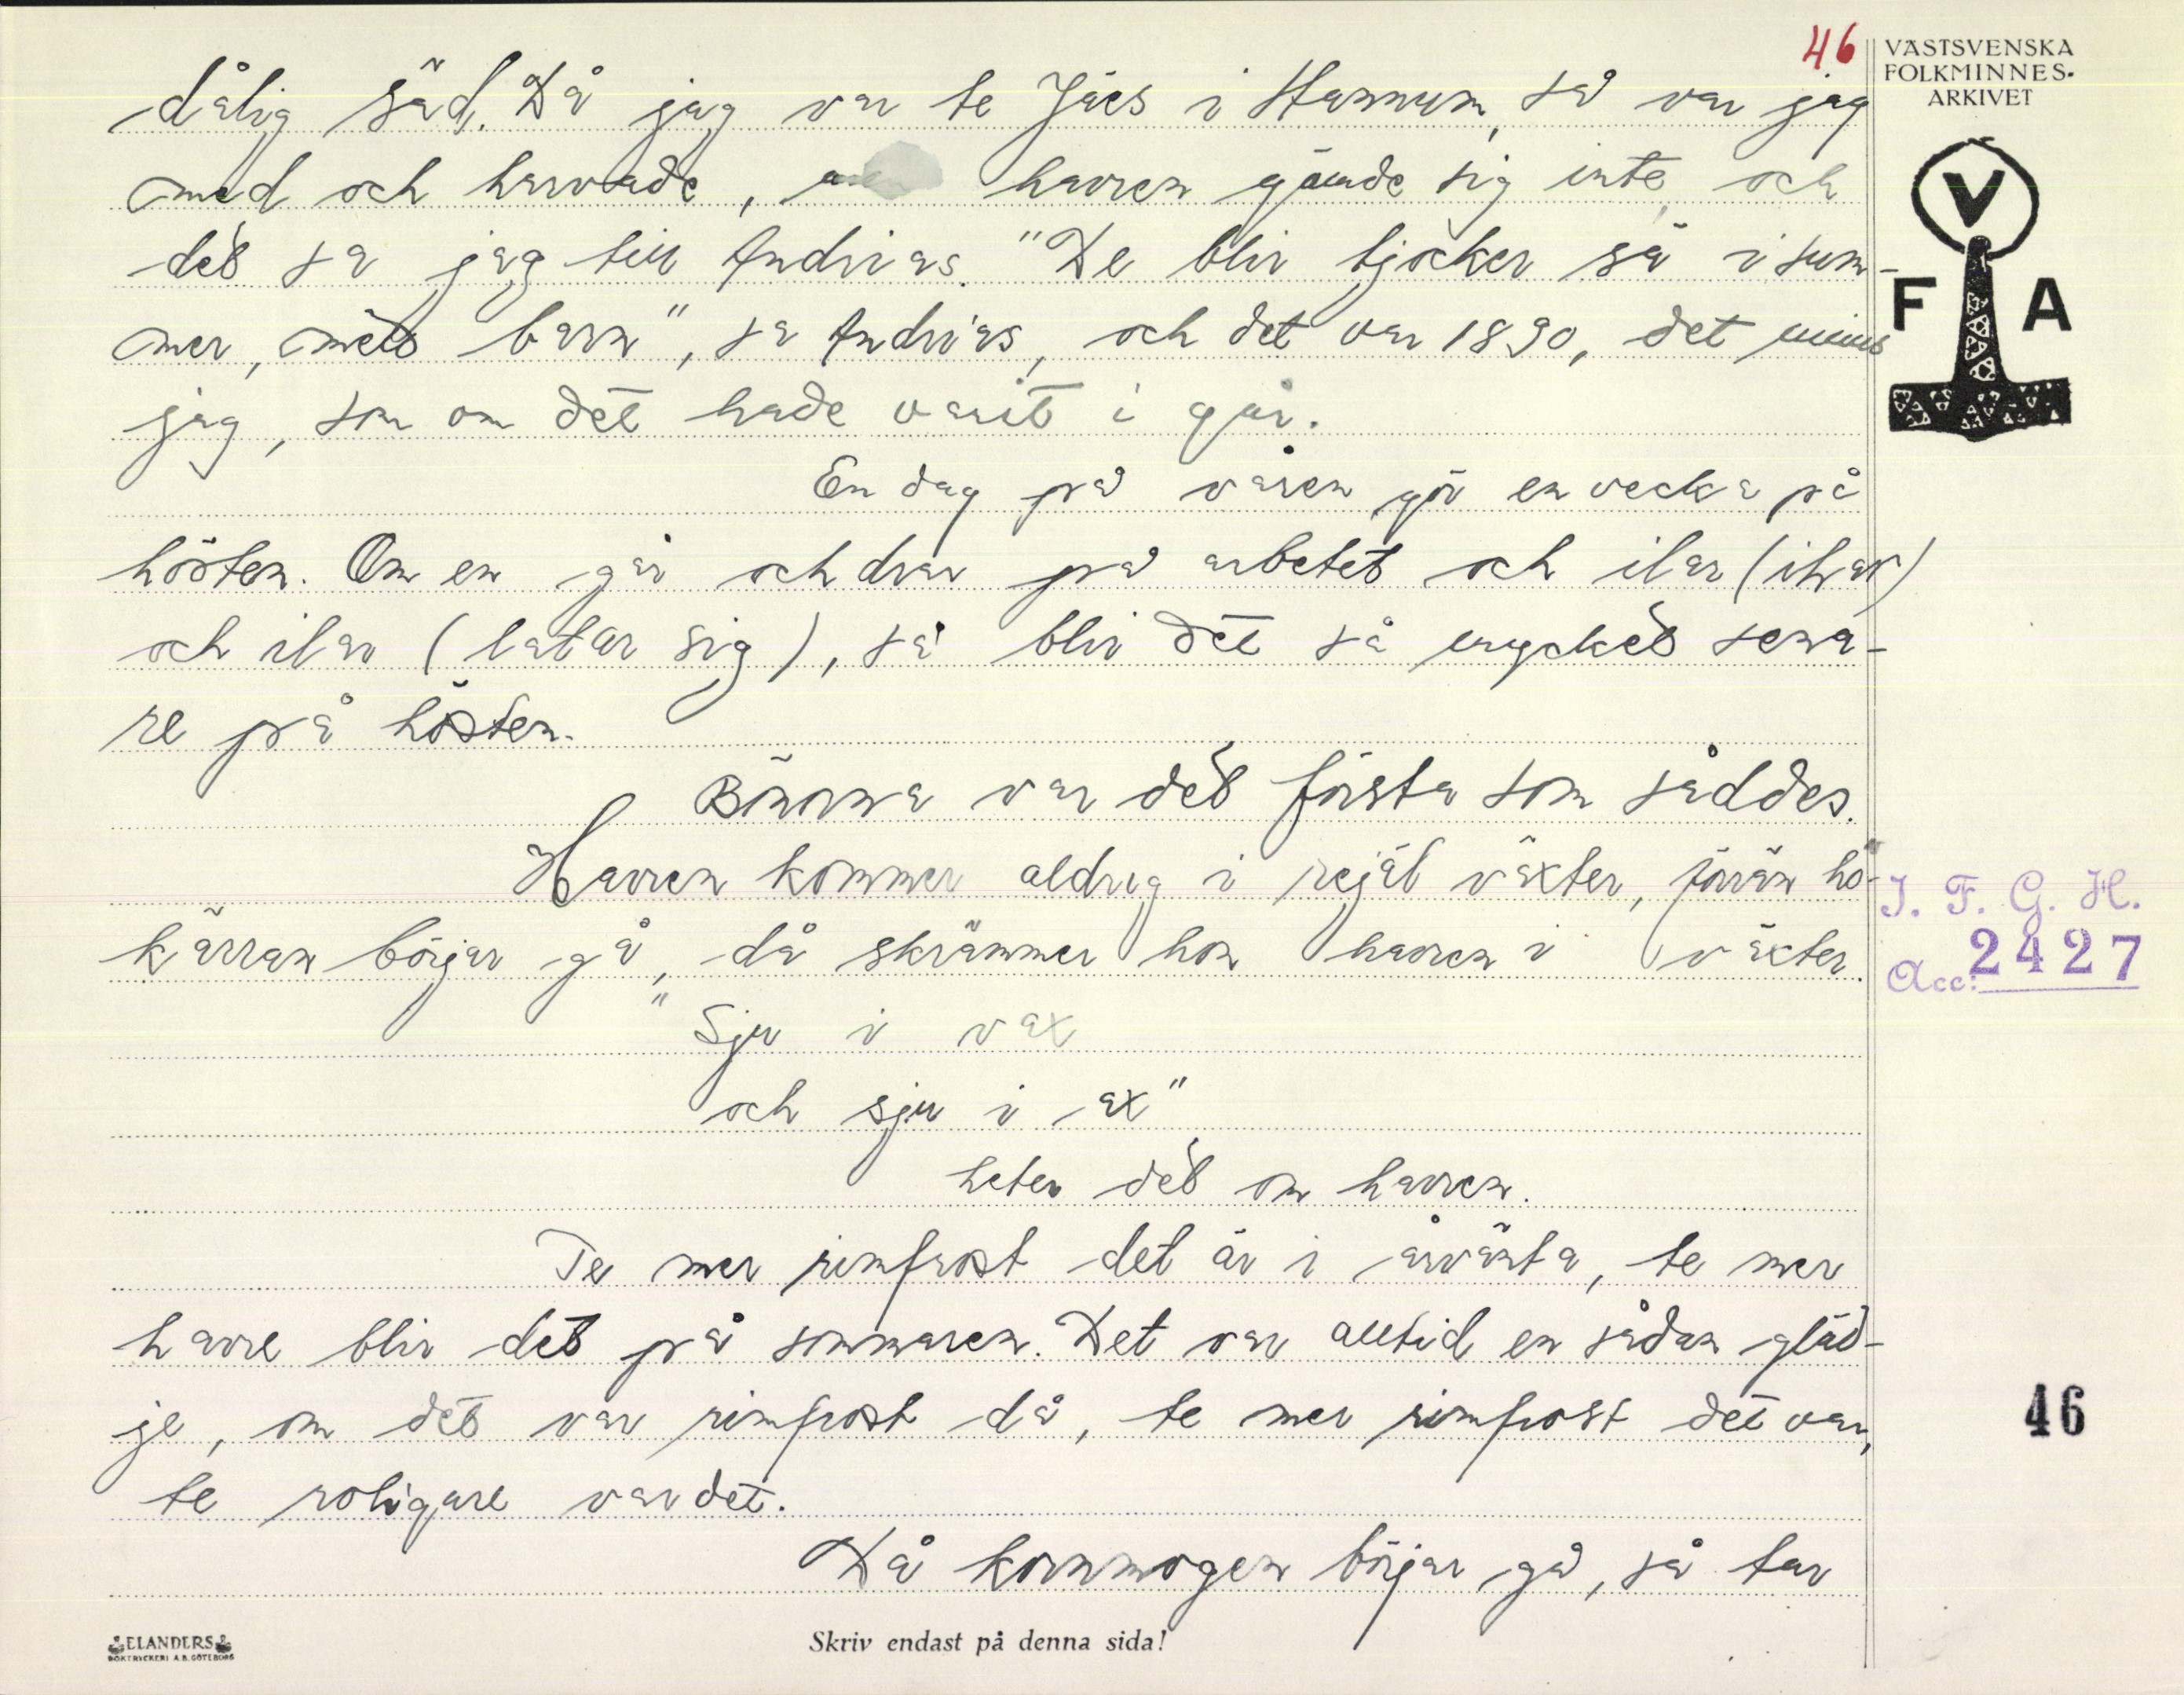 46
VÄSTSVENSKA
FOLKMINNES-
ARKIVET
V
F A
dålig säd. Då jag var te Jäes i Hannum, så var jag
med och harvade, havren gömde sig inte, och
det sa jag till Andrias. "De blir tjocker sä i sum-
mer, mett barn", sa Andrias, och det var 1890, det minns
jag, som om det hade varit i går.
En dag på våren gör en vecka på
hösten. Om en går och drar på arbetet och ilar (ihar)
och ilar (latar sig), så blir det så mycket sena-
re på hösten.
Bönorna var det första som såddes.
Havren kommer aldrig i rejäl växter, förrän hö-
kärran börjar gå, då skrämmer hon havren i växter.
"Sju i vax
och sju i ax"
heter det om havren.
Te mer rimfrost det är i årvänta, te mer
havre blir det på sommaren. Det var alltid en sådan gläd-
je, om det var rimfrost då, te mer rimfrost det var,
te roligare var det.
Då kornmogen börjar gå, så tar
I. F. G. H.
Acc: 2427
46
ELANDERS
BOKTRYCKERI A.B. GÖTEBORG
Skriv endast på denna sida!